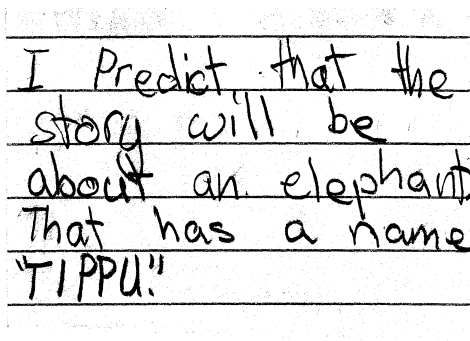 I Predict that the
story will be
about an elephant
That has a name
"TIPPU."